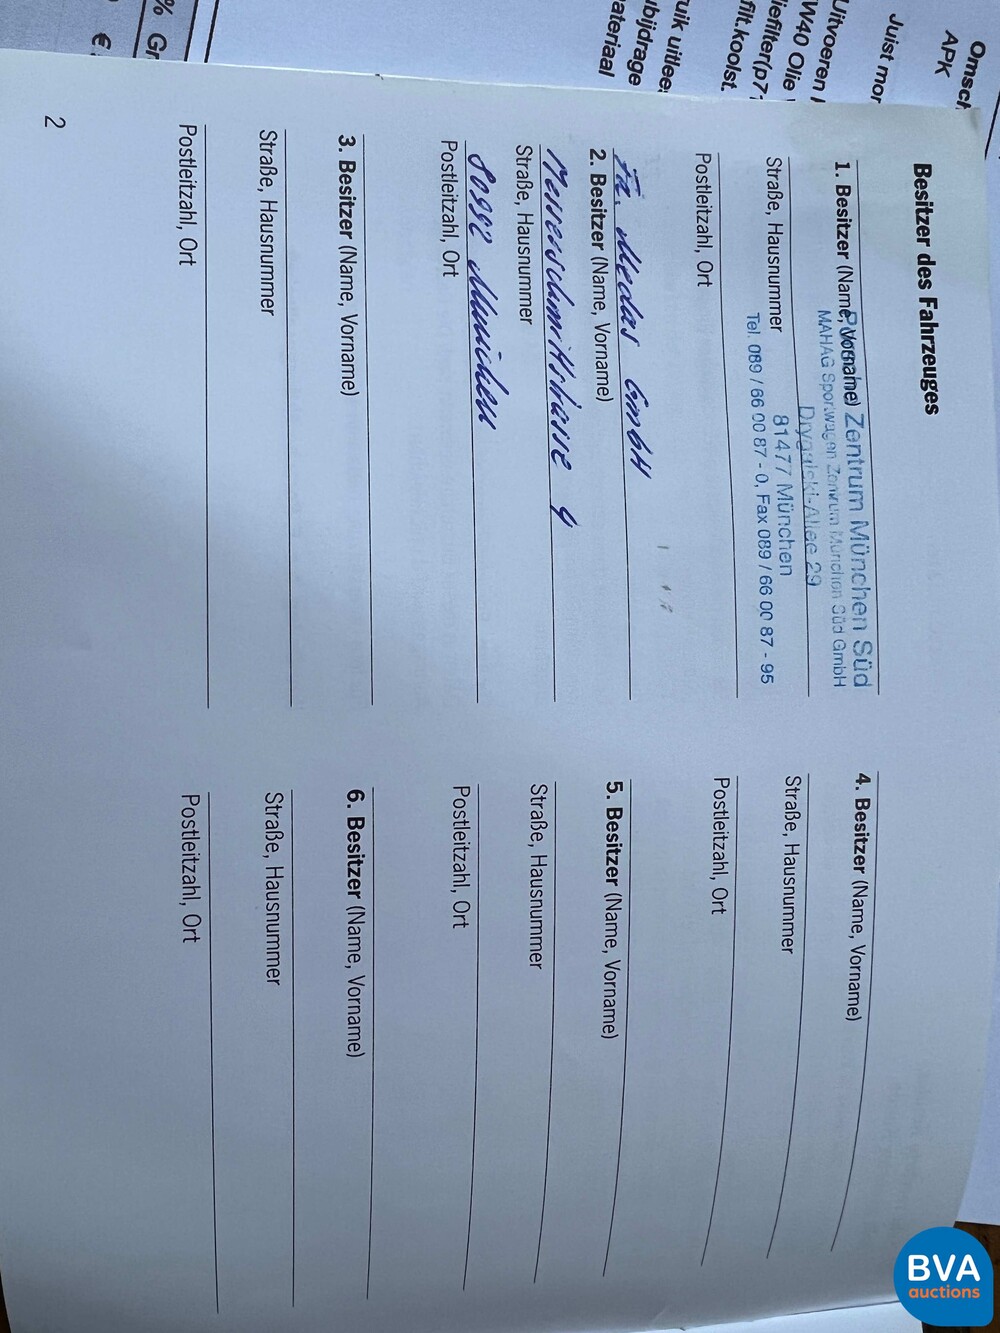 Omsch
APK
Juist mor
Uitvoeren
W40 Olie
filt.koolst.
bijdrage
ateriaal
% Gr
€
Besitzer des Fahrzeuges
Zentrum München Süd
1. Besitzer (Name, Vorname)
MAHAG Sportwagen Zentrum München Süd GmbH
Drygalski-Allee 29
Straße, Hausnummer
81477 München
Tel. 089 / 66 00 87 - 0, Fax 089 / 66 00 87 - 95
Postleitzahl, Ort
GmbH
2. Besitzer (Name, Vorname)
4
Straße, Hausnummer
München
Postleitzahl, Ort
3. Besitzer (Name, Vorname)
Straße, Hausnummer
Postleitzahl, Ort
2
4. Besitzer (Name, Vorname)
Straße, Hausnummer
Postleitzahl, Ort
5. Besitzer (Name, Vorname)
Straße, Hausnummer
Postleitzahl, Ort
6. Besitzer (Name, Vorname)
Straße, Hausnummer
Postleitzahl, Ort
BVA
auctions